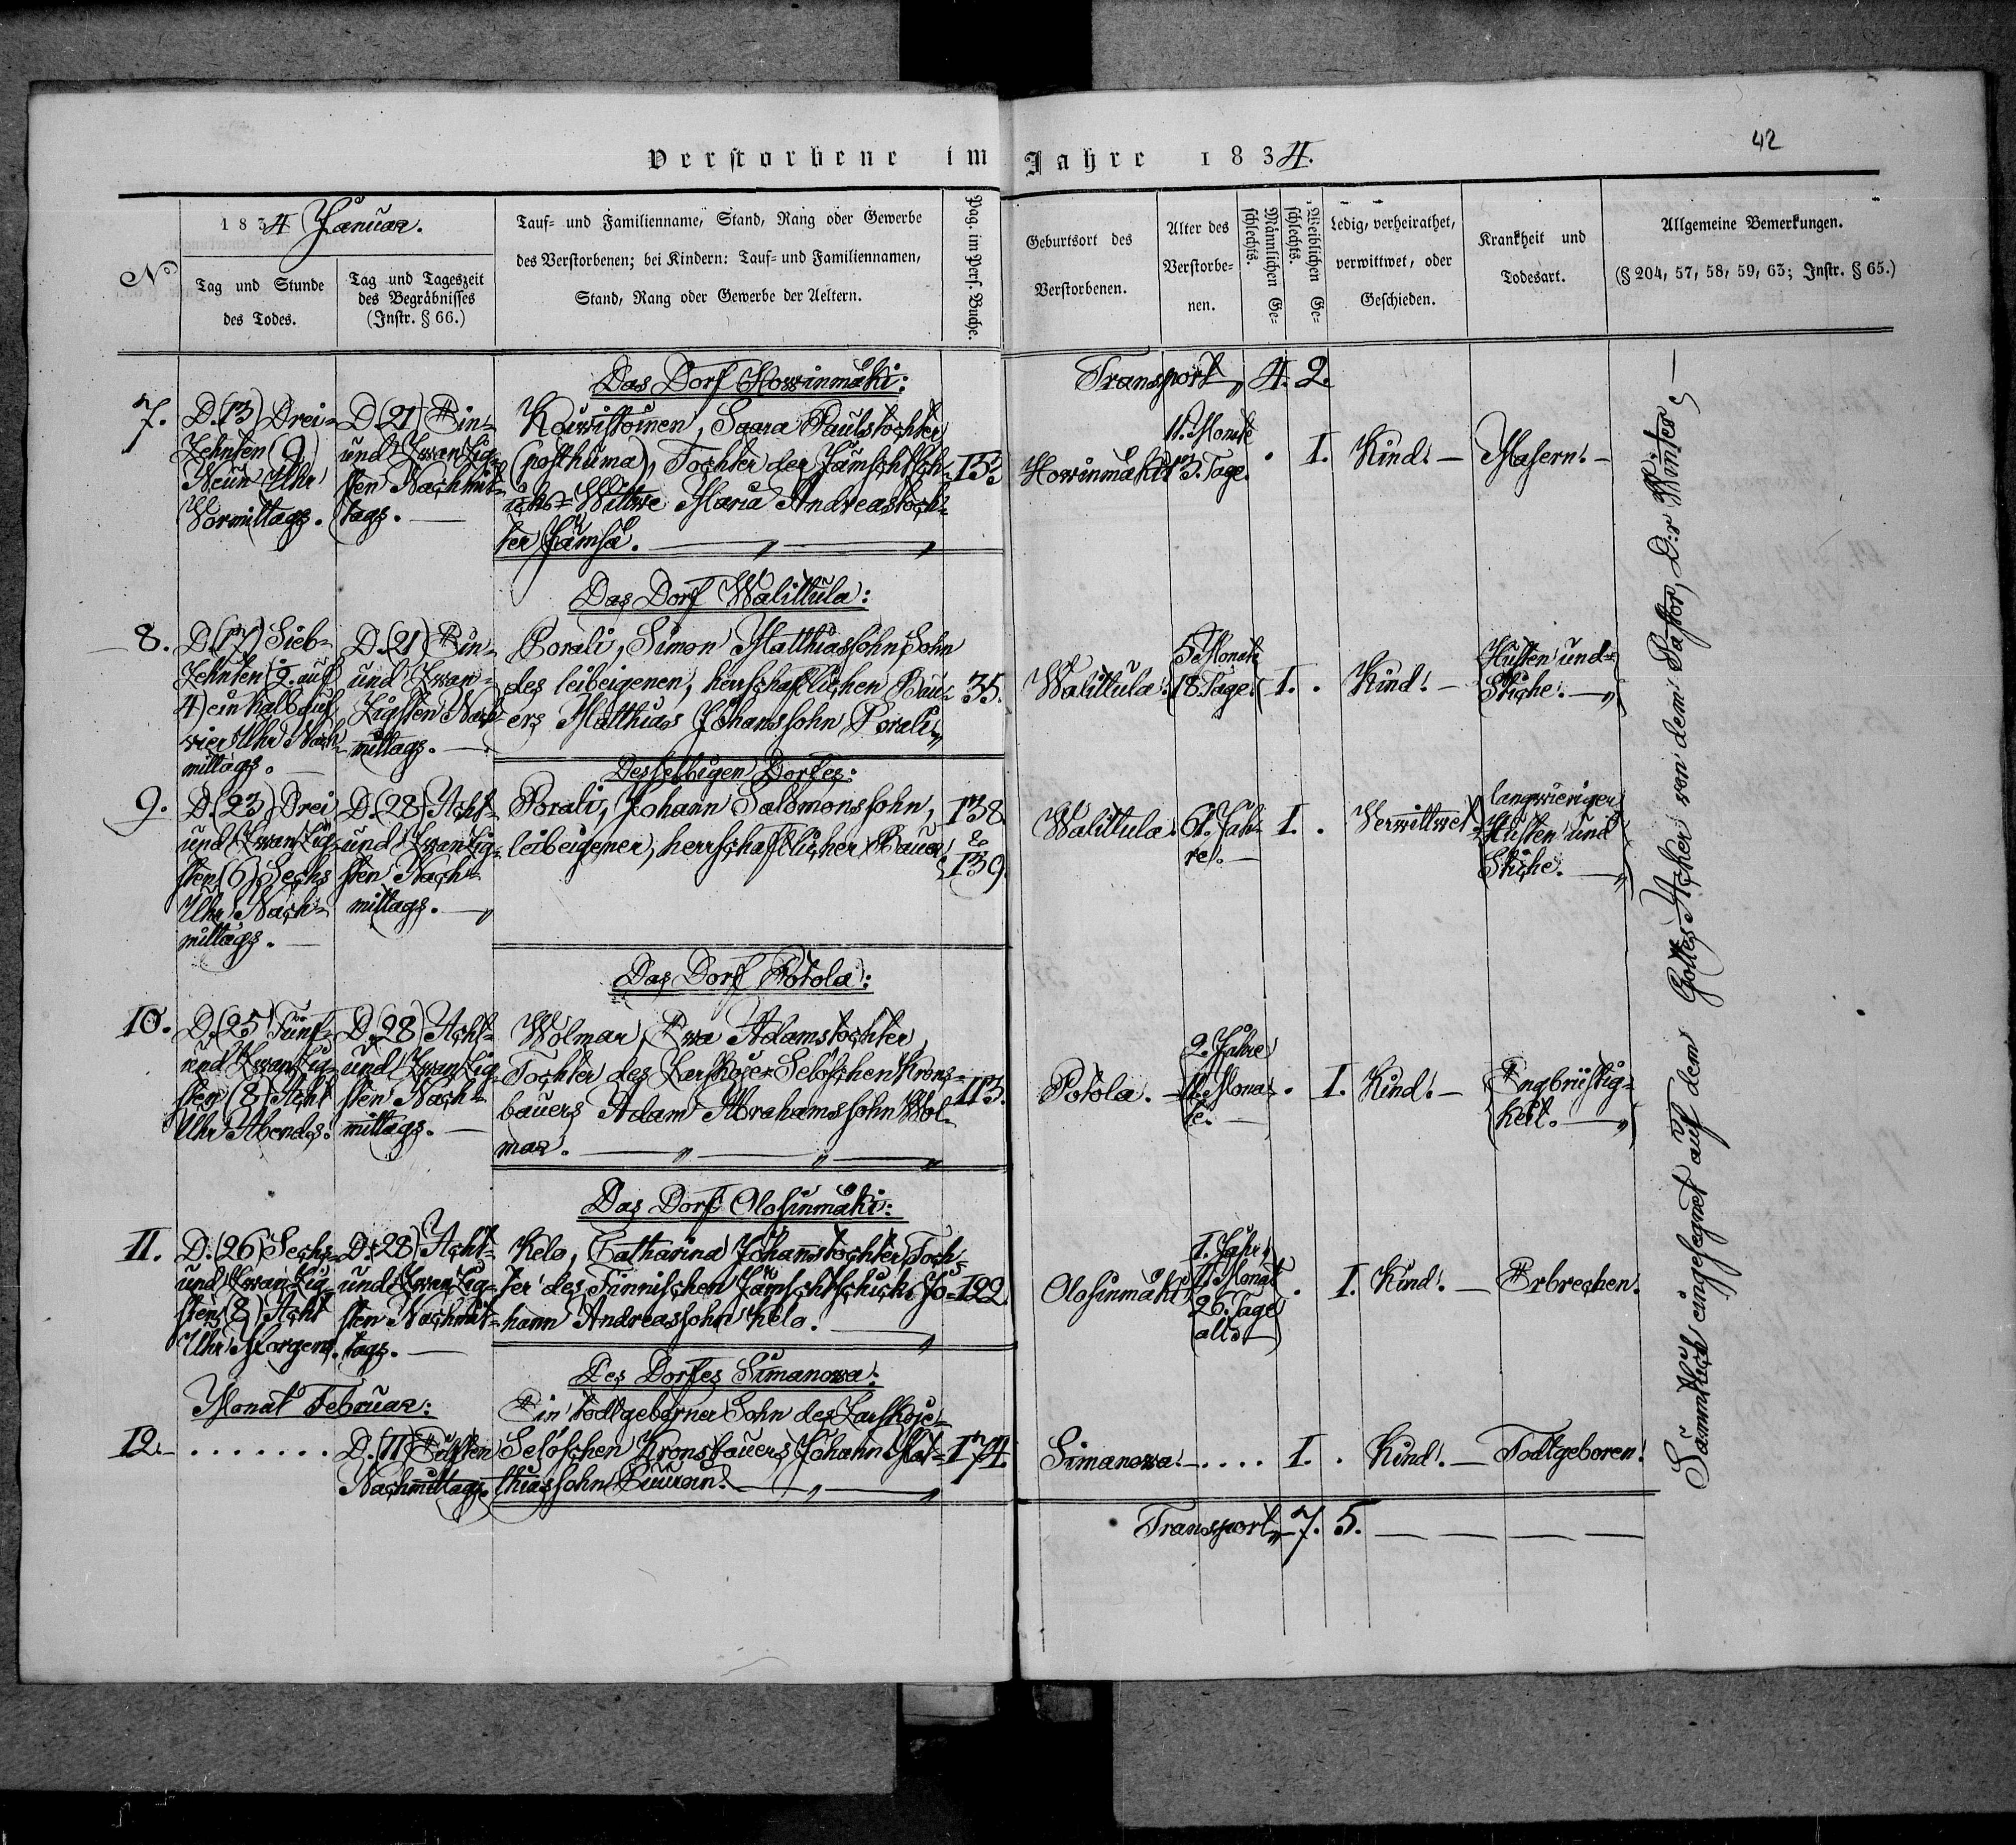 42
Verstorbene im Jahre 1834.
1834 Januar.
No
Tag und Stunde
des Todes.
Tag und Tageszeit
des Begräbnisses
(Instr. § 66.)
Tauf- und Familienname, Stand, Rang oder Gewerbe
des Verstorbenen; bei Kindern: Tauf- und Familiennamen,
Stand, Rang oder Gewerbe der Aeltern.
Pag. im Pers. Buche.
Geburtsort des
Verstorbenen.
Alter des
Verstorbe-
nen.
Männlichen Ge-
schlechts.
Weiblichen Ge-
schlechts.
Ledig, verheirathet,
verwittwet, oder
Geschieden.
Krankheit und
Todesart.
Allgemeine Bemerkungen.
(§ 204, 57, 58, 59, 63; Instr. § 65.)
Transport „ 4. 2.
Das Dorf Howinmäki:
7.
D. (13) Drei-
zehnten (9)
Neun Uhr
Vormittags.
D. (21) Ein-
und zwanzig-
sten Nachmit-
tags. —
Kouwistoinen, Saara Paulstochter
(posthuma), Tochter der Jämschtsch-
icks-Wittwe Maria Andreastoch-
ter Jämsä. — „ — „
153
Howinmäki
11. Monate
13. Tage.
. I.
Kind. —
Masern. —
Das Dorf Walittula:
8.
D. (17) Sieb-
zehnten (½ auf
4) ein halb auf
vier Uhr Nach-
mittags. —
D. (21) Ein-
und zwan-
zigsten Nach-
mittags. —
Porali, Simon Matthiassohn, Sohn
des leibeigenen, herrschaftlichen Bau-
ers Matthias Johanssohn Porali „
35.
Walittula.
5. Monate
18. Tage.
I. .
Kind. —
Husten und
Stiche. — „
Desselbigen Dorfes:
9.
D. (23) Drei
und zwanzig-
sten (6) Sechs
Uhr Nach-
mittags. —
D. (28) Acht-
und zwanzig-
sten Nach-
mittags. — „
Porali, Johann Salomonssohn,
leibeigener, herrschaftlicher Bauer
138.
&
139.
Walittula.
61. Jah-
re. —
I. .
Verwittwet.
langwieriger
Husten und
Stiche. — „
Das Dorf Potola:
10.
D. (25) Fünf-
und zwanzig-
sten (8) Acht
Uhr Abends.
D. (28) Acht-
und zwanzig-
sten Nach-
mittags. —
Wolmar, Ewa Adamstochter,
Tochter des Zarskoje-Seloschen Krons-
bauers Adam Abrahamssohn Wol-
mar. — „ — „ — „
113.
Potola. —
2. Jahre
11. Mona-
te. —
. I.
Kind. —
Engbrüstig-
keit. — „
Das Dorf Olosinmäki:
11.
D. (26) Sechs-
und zwanzig-
sten (8) Acht
Uhr Morgens.
D. (28) Acht-
und zwanzig-
sten Nachmit-
tags. —
Kelo, Catharina Johannstochter, Toch-
ter des Finnischen Jämschtschicks Jo-
hann Andreassohn Kelo. — „
122
Olosinmäki
1. Jahr
Monat
26. Tage
alt. —
. I.
Kind. —
Erbrechen.
Monat Februar:
Des Dorfes Simanowa:
12. —
. . . . . . .
D. (11) Eilften
Nachmittags.
Ein todtgeborner Sohn des Zarskoje-
Seloschen Kronsbauers Johann Mat-
thiassohn
174.
Simanowa. — . . . .
I. .
Kind. —
Todtgeboren.
Transport „ 7. 5. — — — —
Sämmtlich eingesegnet auf dem Gottes Acker von dem Pastor, D:r Winter —